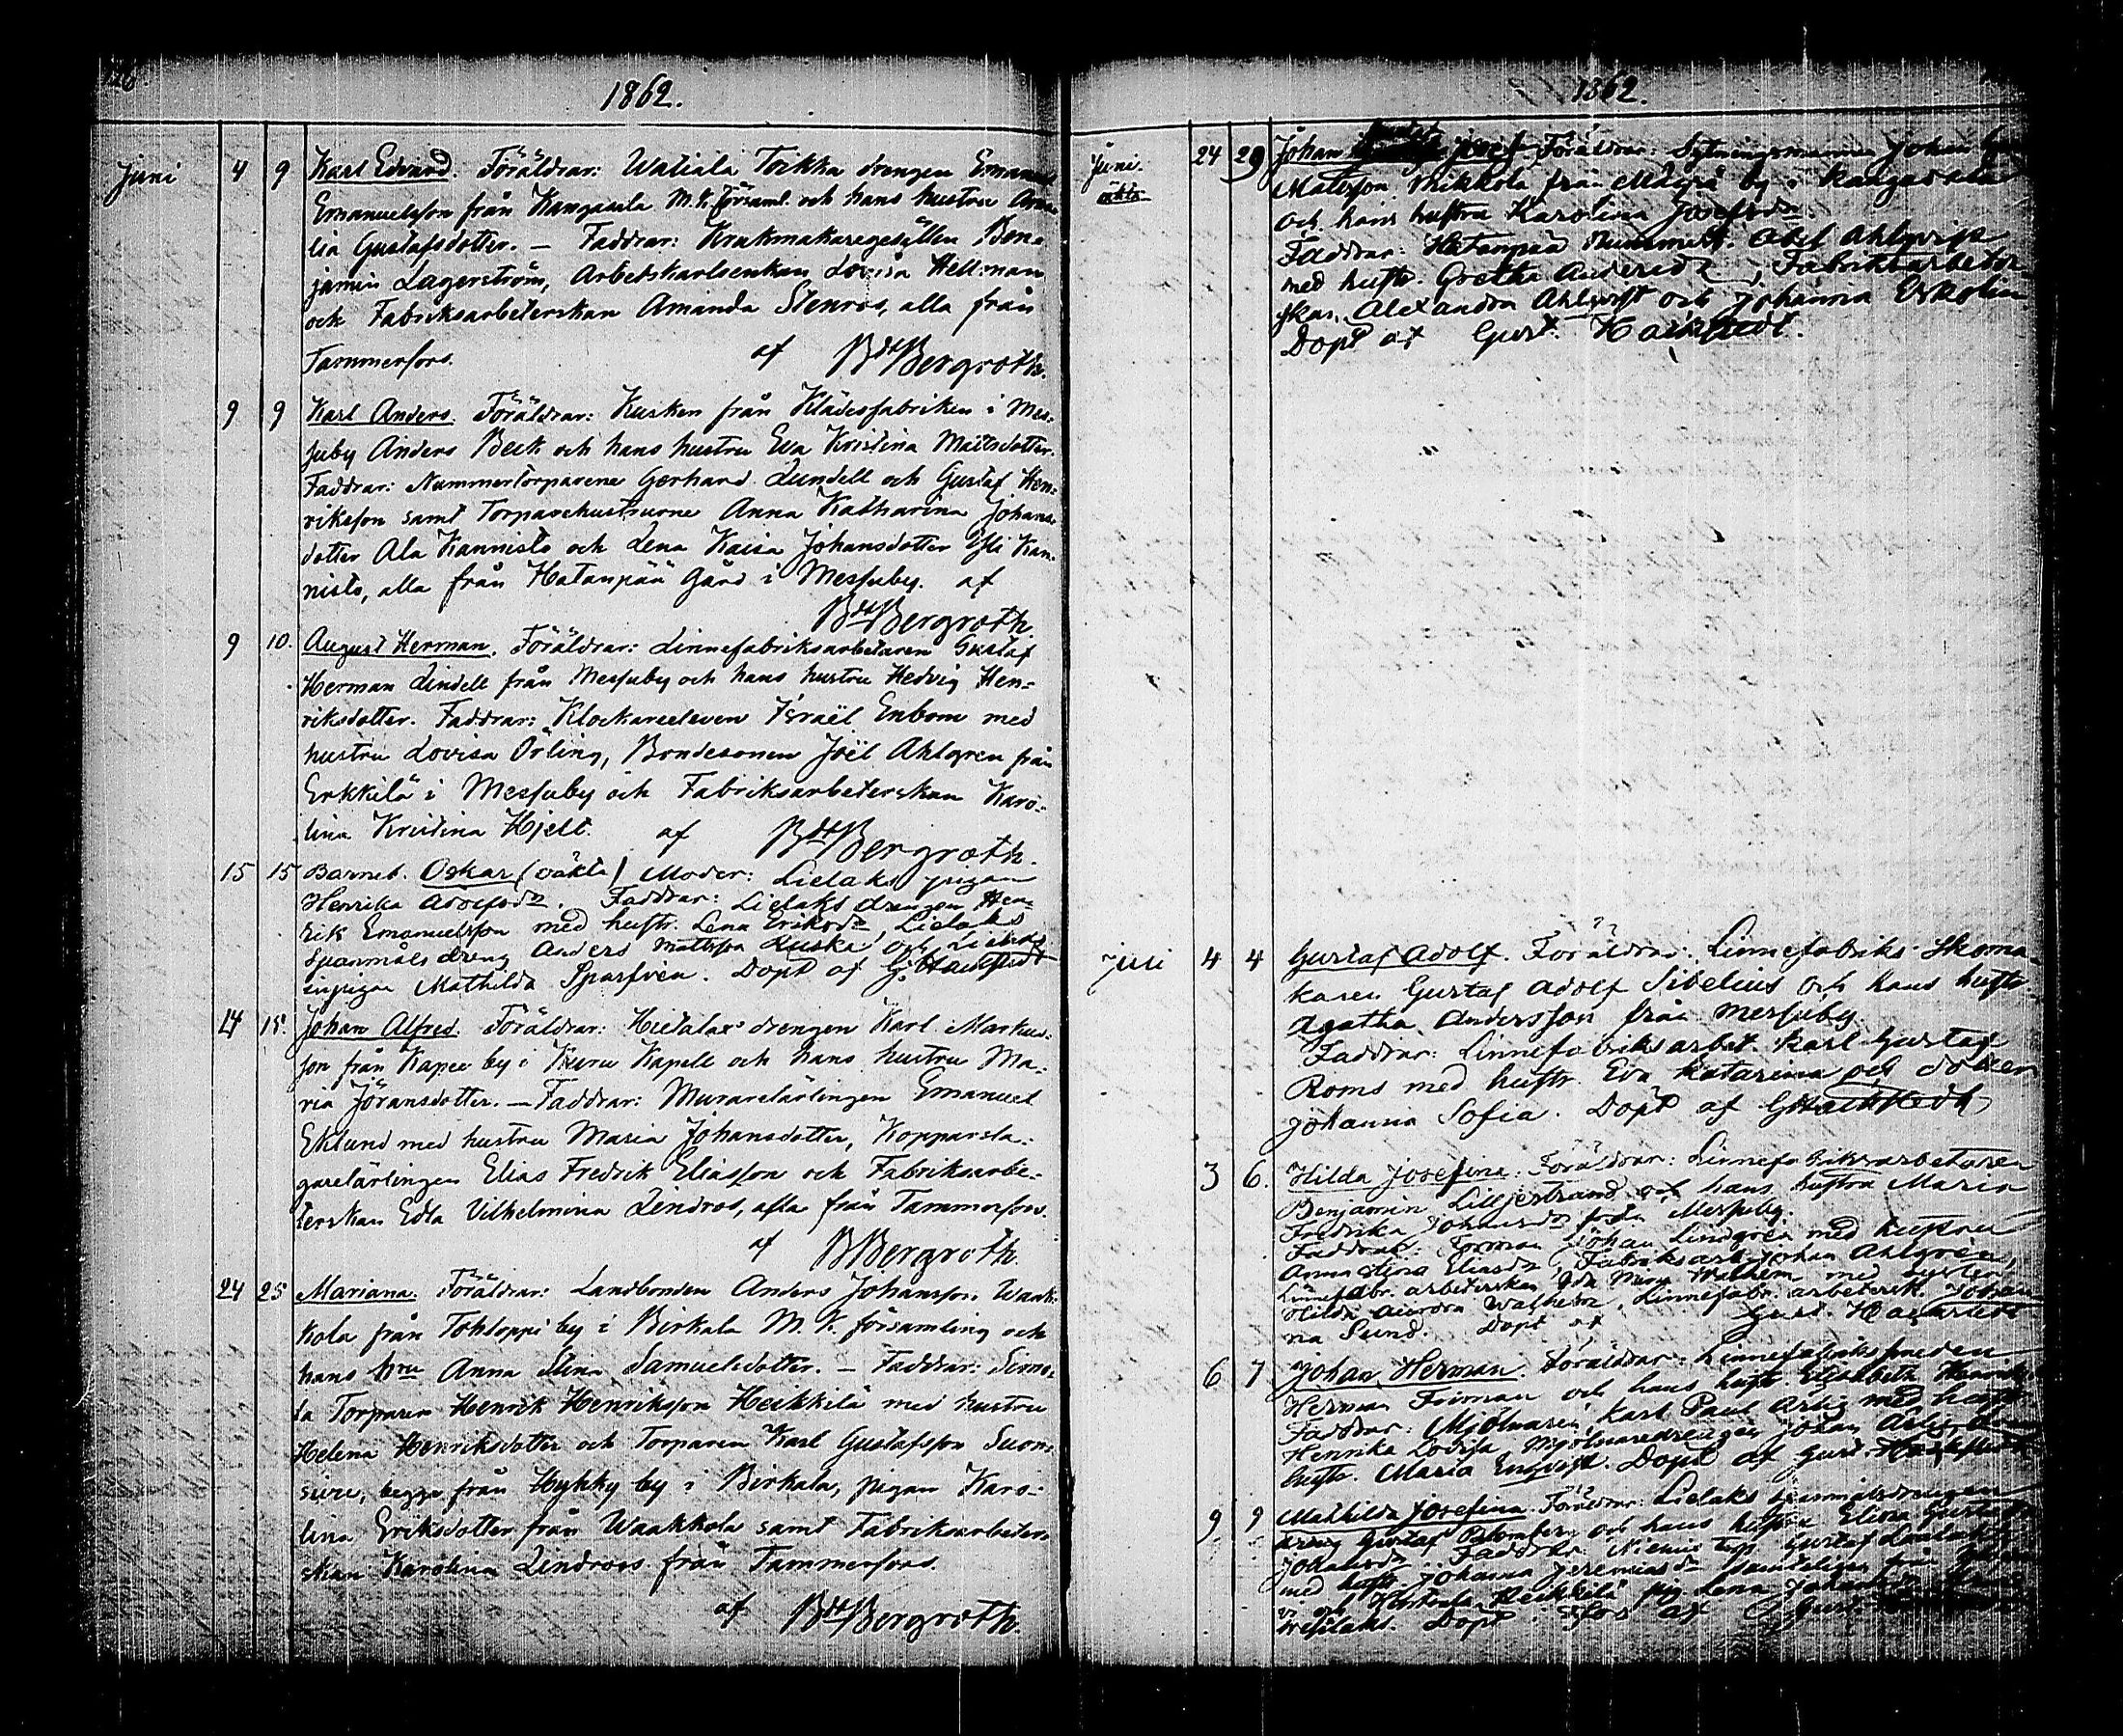 1862.
Juni 4 9 Karl Edvard. Föräldrar: Watiala Toikka drengen Emanuel
Emanuelsson från Kangasala M. K. församl. och hans hustru Ama-
lia Gustafsdotter. — Faddrar: Krukmakaregesällen Ben-
jamin Lagerström, Arbetskarlsenkan Lovisa Hellman
och Fabriksarbeterskan Amanda Stenros, alla från
Tammerfors. af Bdt Bergroth.
9 9 Karl Anders. Föräldrar: Kusken från Klädesfabriken i Mes-
suby Anders Beck och hans hustru Eva Kristina Mattsdotter.
Faddrar: Nummertorparene Gerhard Lundell och Gustaf Hen-
riksson samt Torparehustrurne Anna Katharina Johans-
dotter Ala Kannisto och Lena Kaisa Johansdotter Yli Kan-
nisto, alla från Hatanpää Gård i Messuby. af
Bdt Bergroth.
9 10. August Herman. Föräldrar: Linnefabriksarbetaren Gustaf
Herman Lindell från Messuby och hans hustru Hedvig Hen-
riksdotter. Faddrar: Klockareeleven Israël Enbom med
hustru Lovisa Örling, Bondesonen Joël Ahlgren från
Erkkilä i Messuby och Fabriksarbeterskan Karo-
lina Kristina Hjelt. af Bdt Bergroth.
15 15 Barnet. Oskar (oäkta) Moder: Lielaks pigan
Henrika Adolfsdr. Faddrar: Lielaks drengen Hen-
rik Emanuelsson med hustr. Lena Eriksdr, Lielaks
Spanmåls dreng Anders Mattsson Kuske och Lielaks
inpigan Mathilda Sparfvén. Döpt af G. Hackstedt
14 15. Johan Alfred. Föräldrar: Hietalax drengen Karl Markus-
son från Kapee by i Kuru Kapell och hans hustru Ma-
ria Jöransdotter. — Faddrar: Murarelärlingen Emanuel
Eklund med hustru Maria Johansdotter, Kopparsla-
garelärlingen Elias Fredrik Eliasson och Fabriksarbe-
terskan Edla Vilhelmina Lindros, alla från Tammerfors.
af B Bergroth.
24 25 Mariana. Föräldrar: Landbonden Anders Johansson Waak-
kola från Tohloppi by i Birkala M. K. församling och
hans hru Anna Stina Samuelsdotter. — Faddrar: Simo-
la Torparen Henrik Henriksson Heikkilä med hustru
Helena Henriksdotter och Torparen Karl Gustafsson Suon-
sivu, begge från Hyhky by i Birkala, pigan Karo-
lina Eriksdotter från Waakkola samt Fabriksarbeter-
skan Karolina Lindroos från Tammerfors.
af Bdt Bergroth.
1862.
Juni. 24 29 Johan Josef Föräldrar: Sytningsmannen Johan
Matsson Mikkola från by i Kangasala
och hans hustru Karolina Josefsdr.
Faddrar: Hatanpää Abel Ahlqvist
med hustr. Gretha Andersdr, Fabriksarbeter-
skan Alexandra Ahlqvist och Johanna Eskolin
Döpt af Gust. Hackstedt.
Juli 4 4 Gustaf Adolf. Föräldrar: Linnefabriks Skoma-
karen Gustaf Adolf Sibelius och hans hustr.
Agatha Andersson från Messuby.
Faddrar: Linnefabriksarbet. Karl Gustaf
Roms med hustr. Eva Katarina och dotter
Johanna Sofia. Döpt af G Hackstedt
3 6. Hilda Josefina. Föräldrar: Linnefabriksarbetaren
Benjamin Liljestrand och hans hustru Maria
Fredrika Johansdr från Messuby.
Faddrar: Forman Johan Lindgren med hustru
Anna Stina Eliasdr, Fabriksarb. Johan Ahlgrén,
Linnefabr. arbeterskan Ida Maria Walhelm med syster
Hilda Aurora Walhelm, Linnefabr. arbetersk. Johan-
na Sund. Döpt af Gust. Hackstedt
6 7 Johan Herman. Föräldrar: Linnefabrikssmeden
Herman Forman och hans hustr. Elisabeth Henriksdr
Faddrar: Mjölnaren Karl Paul Arlig med hustr
Henrika Lovisa, Mjölnaredrengen Johan Arlig,
hustr. Maria Enqvist. Döpt af Gust. Hackstedt
9 9 Mathilda Josefina. Föräldrar: Lielaks spanmålsdrengen
Gustaf Blomberg och hans hustru Elina Gustafva
Johansdr. Faddrar: Niemis torp. Gustaf
med hustr Johanna Jeremiasdr från
och Heikkilä pig Lena Johansdr
Döpt af Gust.